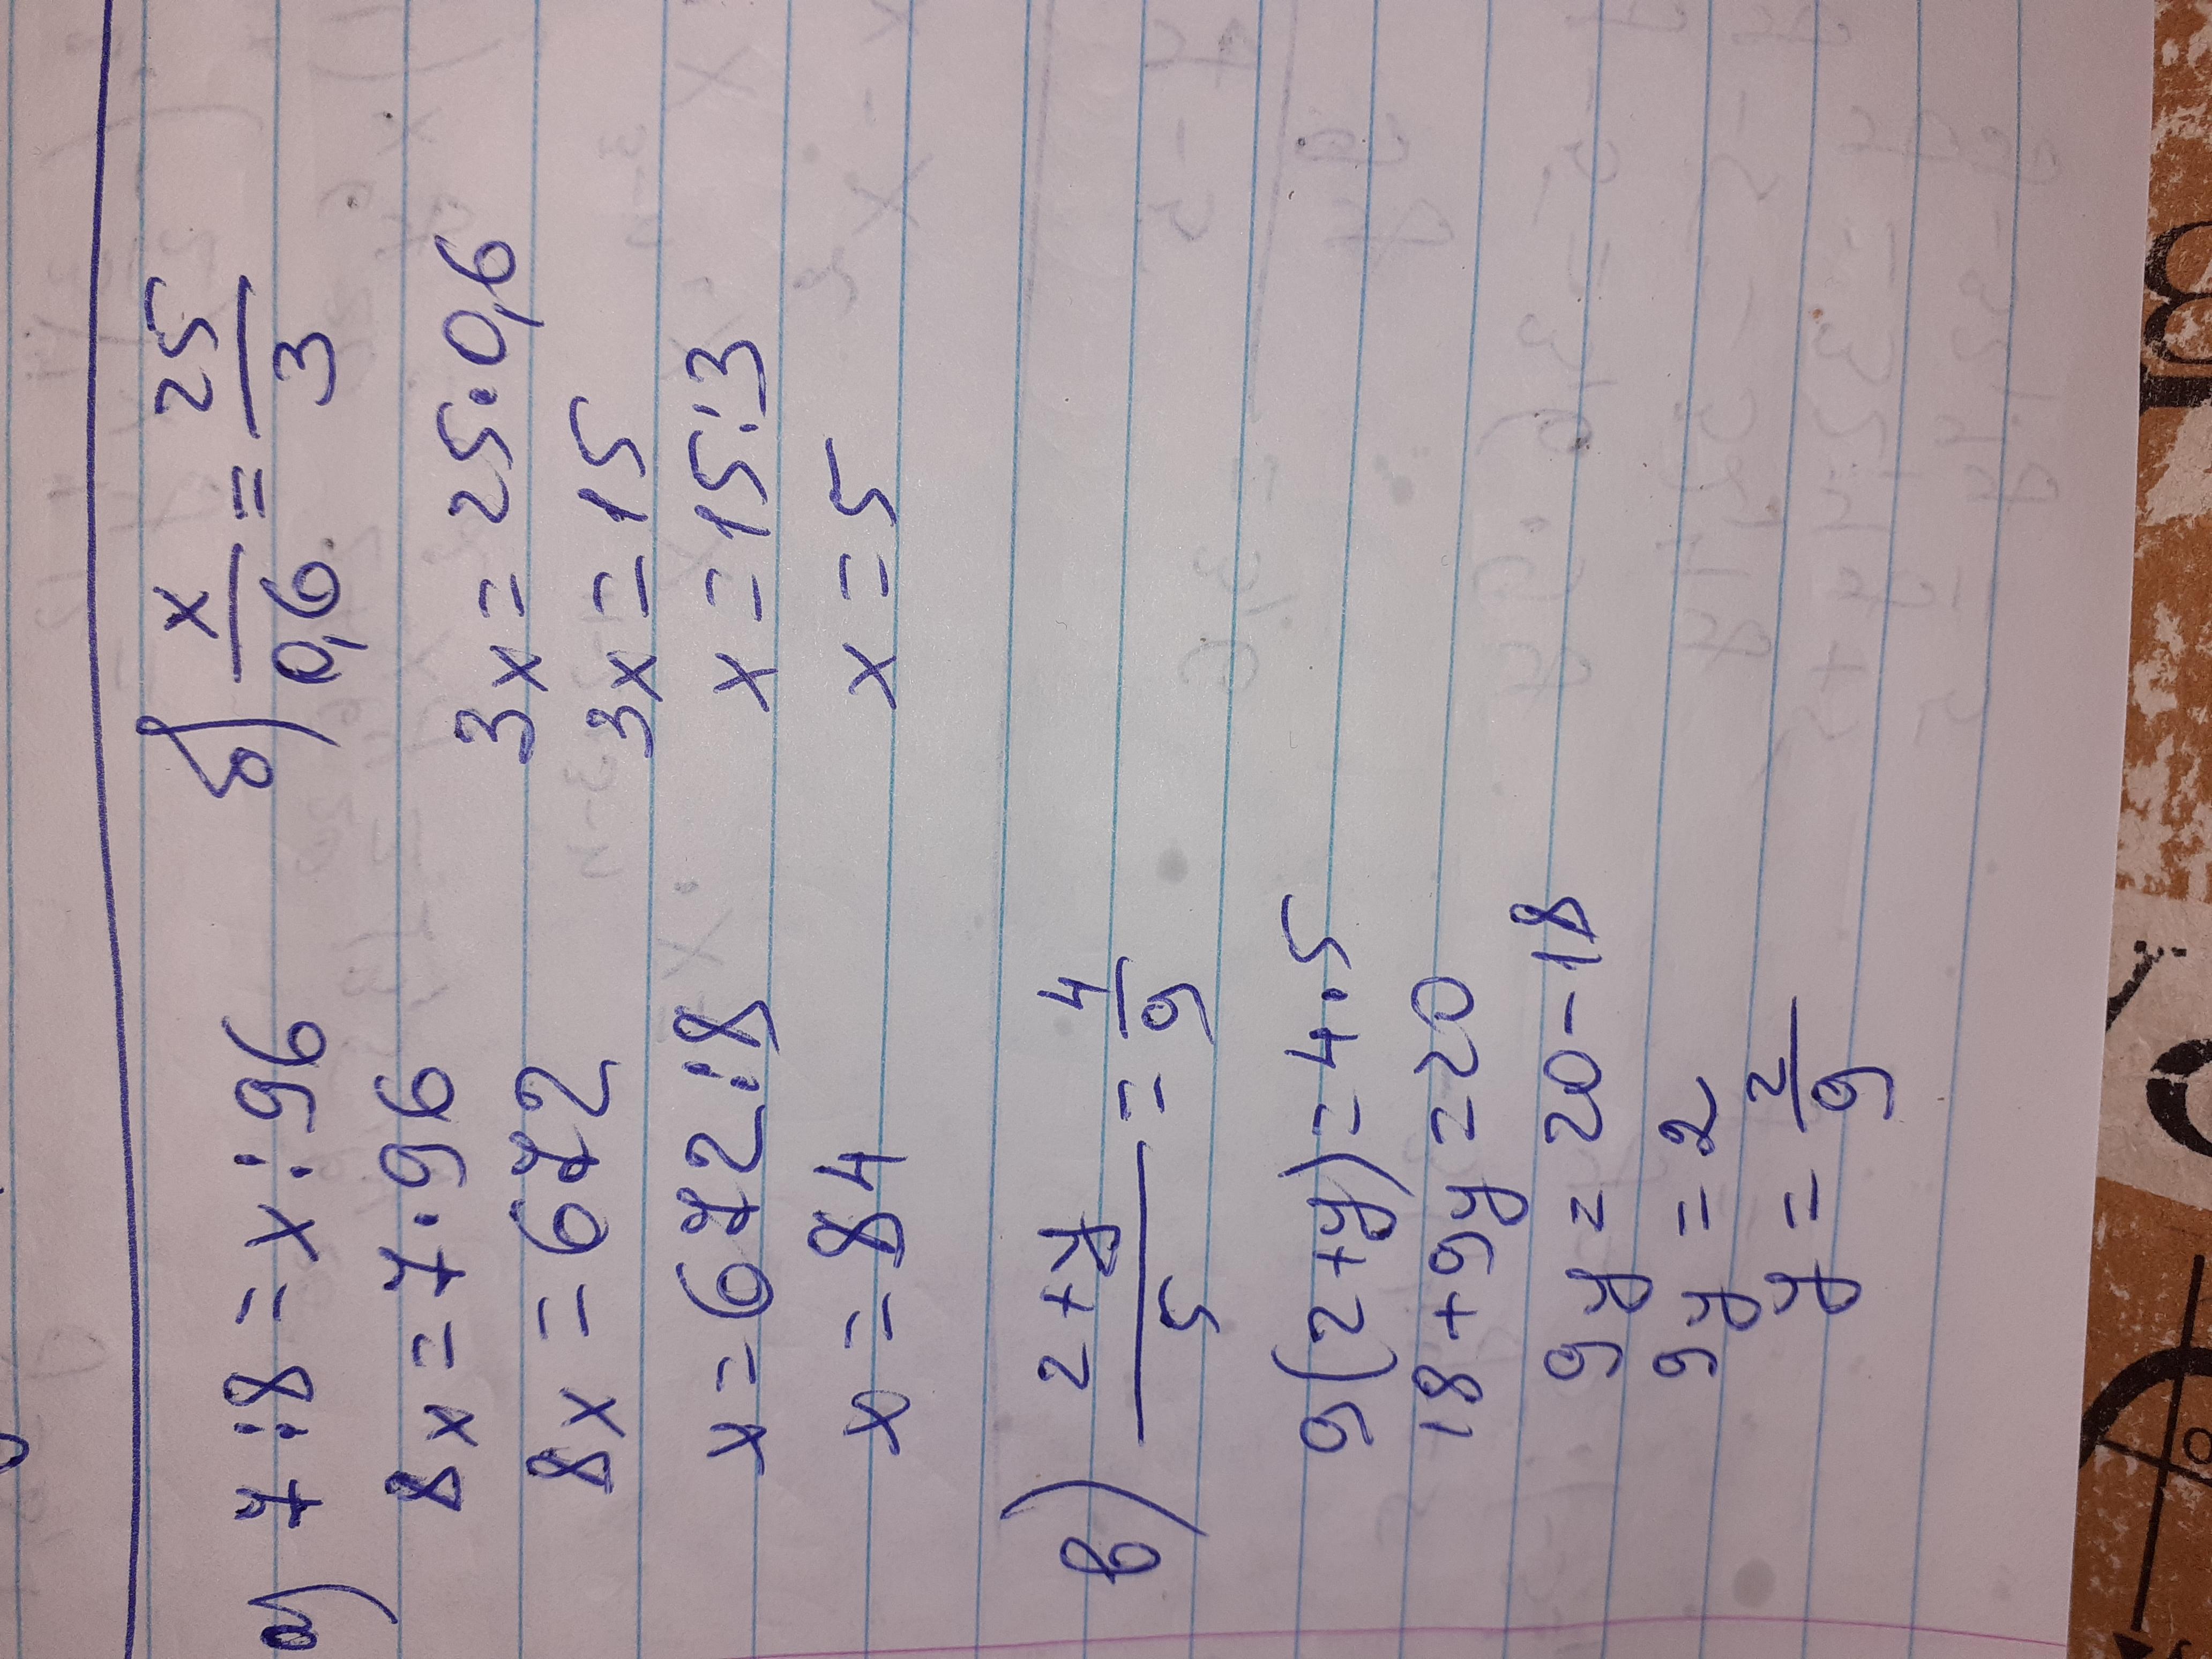 а) 7:8=x:96
8x=7·96
8x=672
x=672:8
x=84
б) x/0,6=25/3
3x=25·0,6
3x=15
x=15:3
x=5
в) 2+y/5=4/9
9(2+y)=4·5
18+9y=20
9y=20-18
9y=2
y=2/9